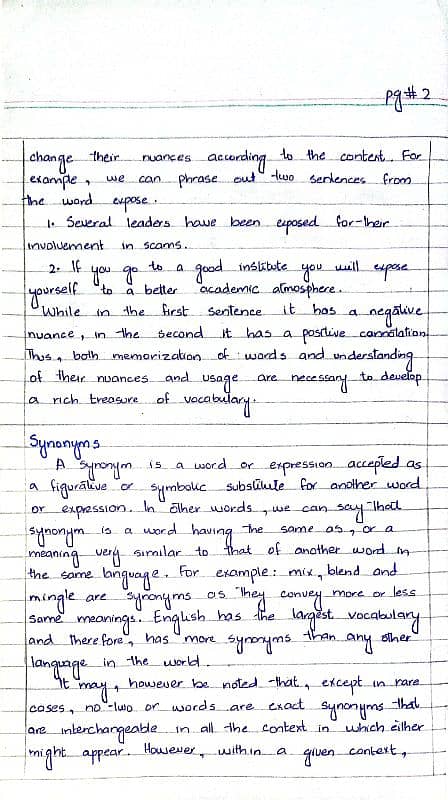 pg# 2
change their nuances according to the context. For
example, we can phrase out two sentences from
the word expose.
1. Several leaders have been exposed for their
involvement in scams.
2. If you go to a good institute you will expose
yourself to a better academic atmosphere.
While in the first sentence it has a negative
nuance, in the second it has a positive connotation.
Thus, both memorization of words and understanding
of their nuances and usage are necessary to develop
a rich treasure of vocabulary.
Synonyms
A synonym is a word or expression accepted as
a figurative or symbolic substitute for another word
or expression. In other words, we can say that
synonym is a word having the same as, or a
meaning very similar to that of another word in
the same language. For example: mix, blend and
mingle are synonyms as they convey more or less
same meanings. English has the largest vocabulary
and therefore, has more synonyms than any other
language in the world.
It may, however be noted that, except in rare
cases, no two or words are exact synonyms that
are interchangeable in all the context in which either
might appear. However, within a given context,